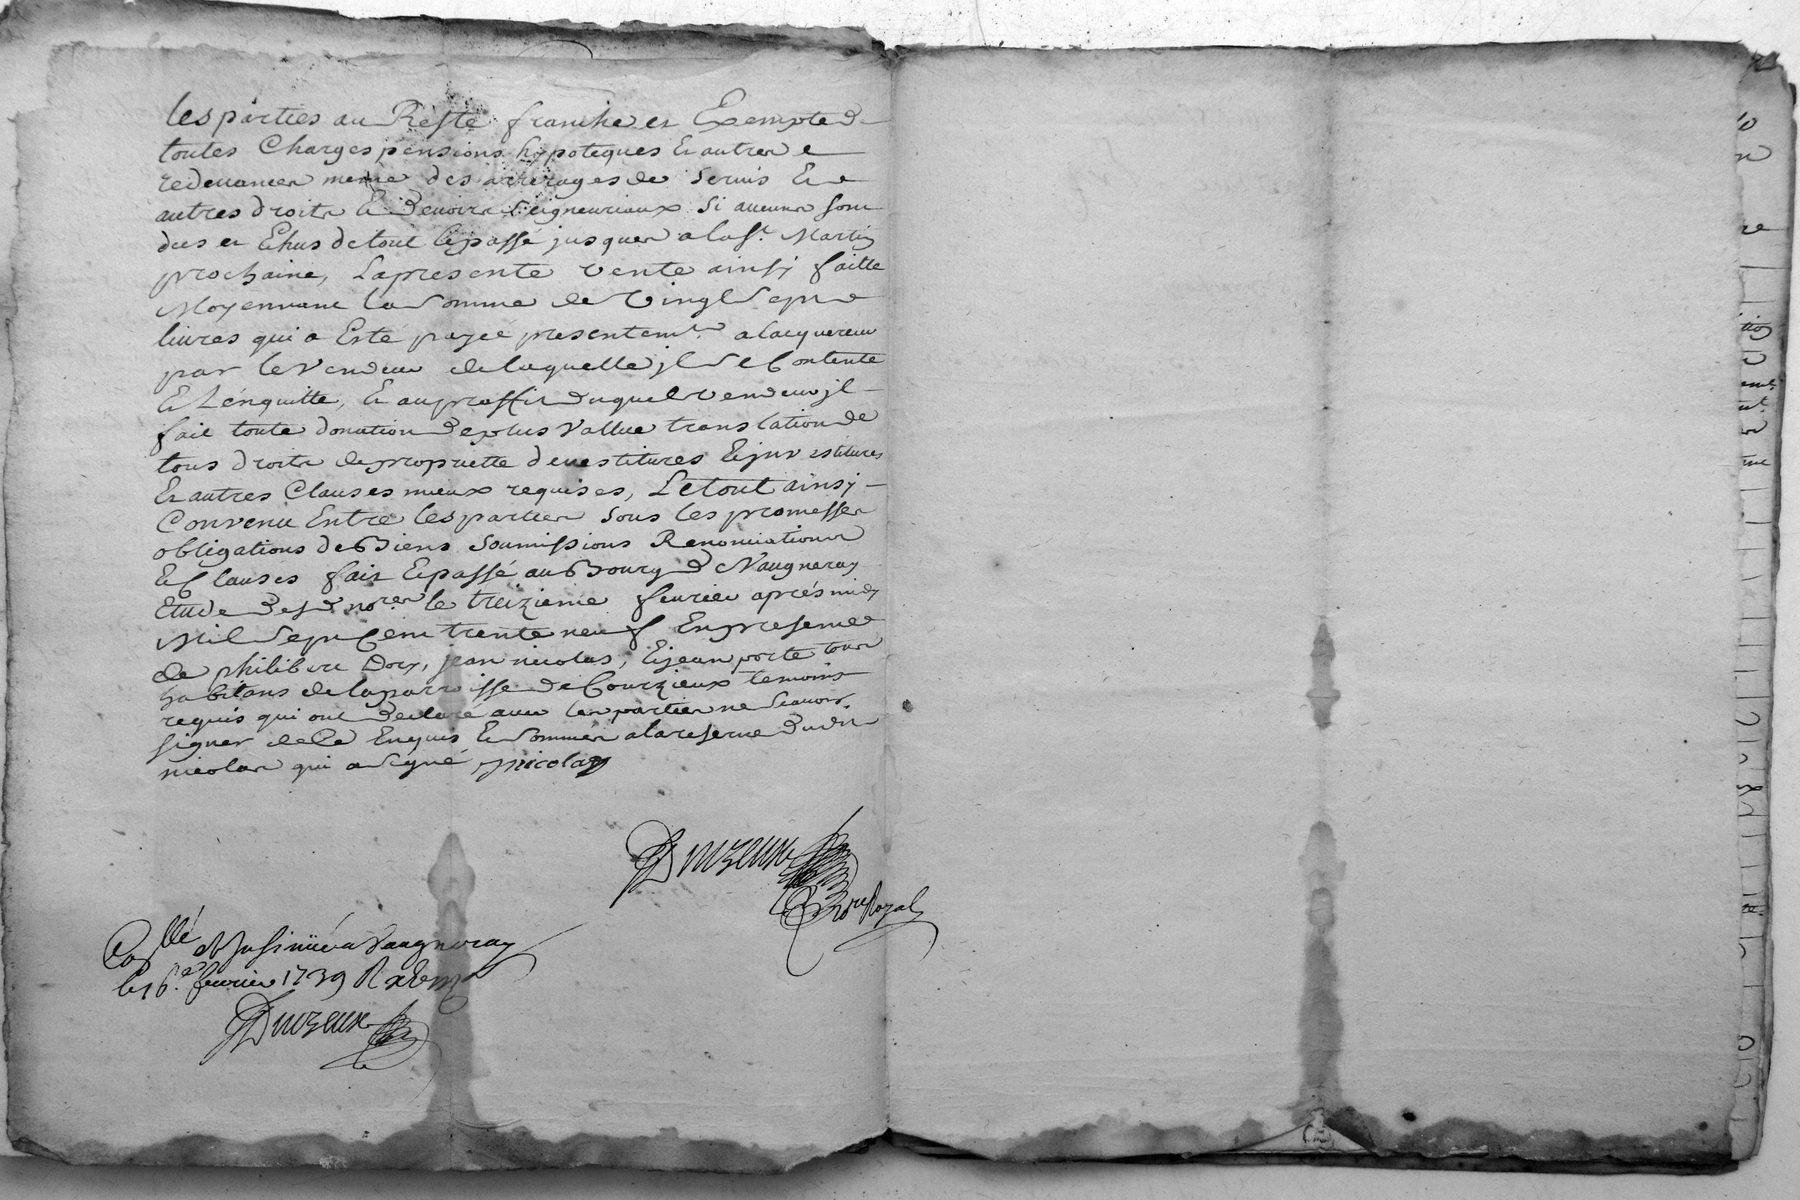 les parties au Reste franche et Exempte de
toutes Charges pensions hypoteques Et autres
redevances meme des arrerages de servis Et
autres droits Et devoirs seigneuriaux si aucuns sont
dus et Echus de tout le passé jusques a la st. Martin
prochaine, La presente vente ainsy faitte
Moyennant la somme de vingt sept
livres qui a Esté payée presentemt. a lacquereur
par le vendeur de laquelle jl se Contente
Et L'enquitte, Et au proffit duquel vendeur jl
fait toute donation de plus vallue translation de
tous droits de proprietté devestitures Et jnvestitures
Et autres Clauses mieux requises, Le tout ainsy
Convenu Entre les parties sous les promesses
obligations de Biens soumissions Renonciations
Et Clauses fait Et passé au Bourg de Vaugneray
Etude desd. nores le treizieme fevrier aprés midy
Mil sept Cent trente neuf En presence
de philibert Dory, jean nicolas, Et jean porte tous
habitans de la parroisse de Courzieux temoins
requis qui ont declaré avec les parties ne scavoir
signer de ce Enquis Et sommés a la reserve dudit
nicolas qui a signé jnicolas
Duzeux
Nore Royal
Collé et Insinüé a Vaugneray
le 16.e fevrier 1739
Duzeux